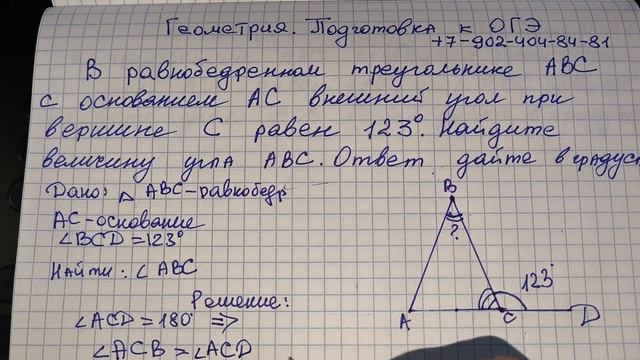 Геометрия. Подготовка к ОГЭ
+7-902-404-84-81
В равнобедренном треугольнике ABC
с основанием AC внешний угол при
вершине C равен 123°. Найдите
величину угла ABC. Ответ дайте в градус
Дано: △ ABC-равнобедр
AC-основание
∠BCD=123°
Найти: ∠ABC
Решение:
∠ACD=180° ⇒
∠ACB > ∠ACD
B
?
123°
A
C
D